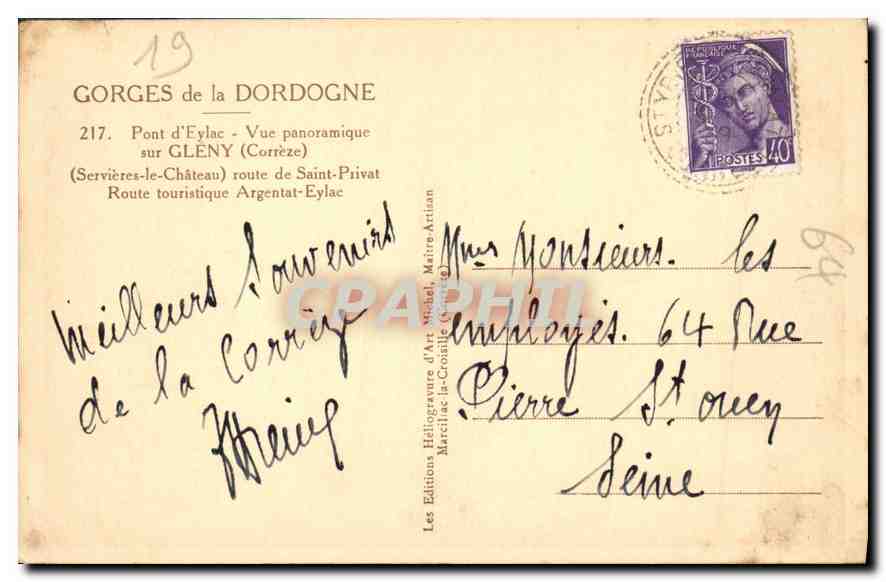 19
GORGES de la DORDOGNE
217. Pont d'Eylac - Vue panoramique
sur GLÉNY (Corrèze)
(Servières-le-Château) route de Saint-Privat
Route touristique Argentat-Eylac
Meilleurs Souvenirs
de la Corrèze
Les Editions Héliogravure d'Art Michel, Maître-Artisan
Marcillac-la-Croisille (Corrèze)
REPUBLIQUE
FRANÇAISE
POSTES 40c
ST YB
64
Mmes Monsieurs. les
employés. 64 Rue
Pierre St ouen
Seine
CPAPHIL